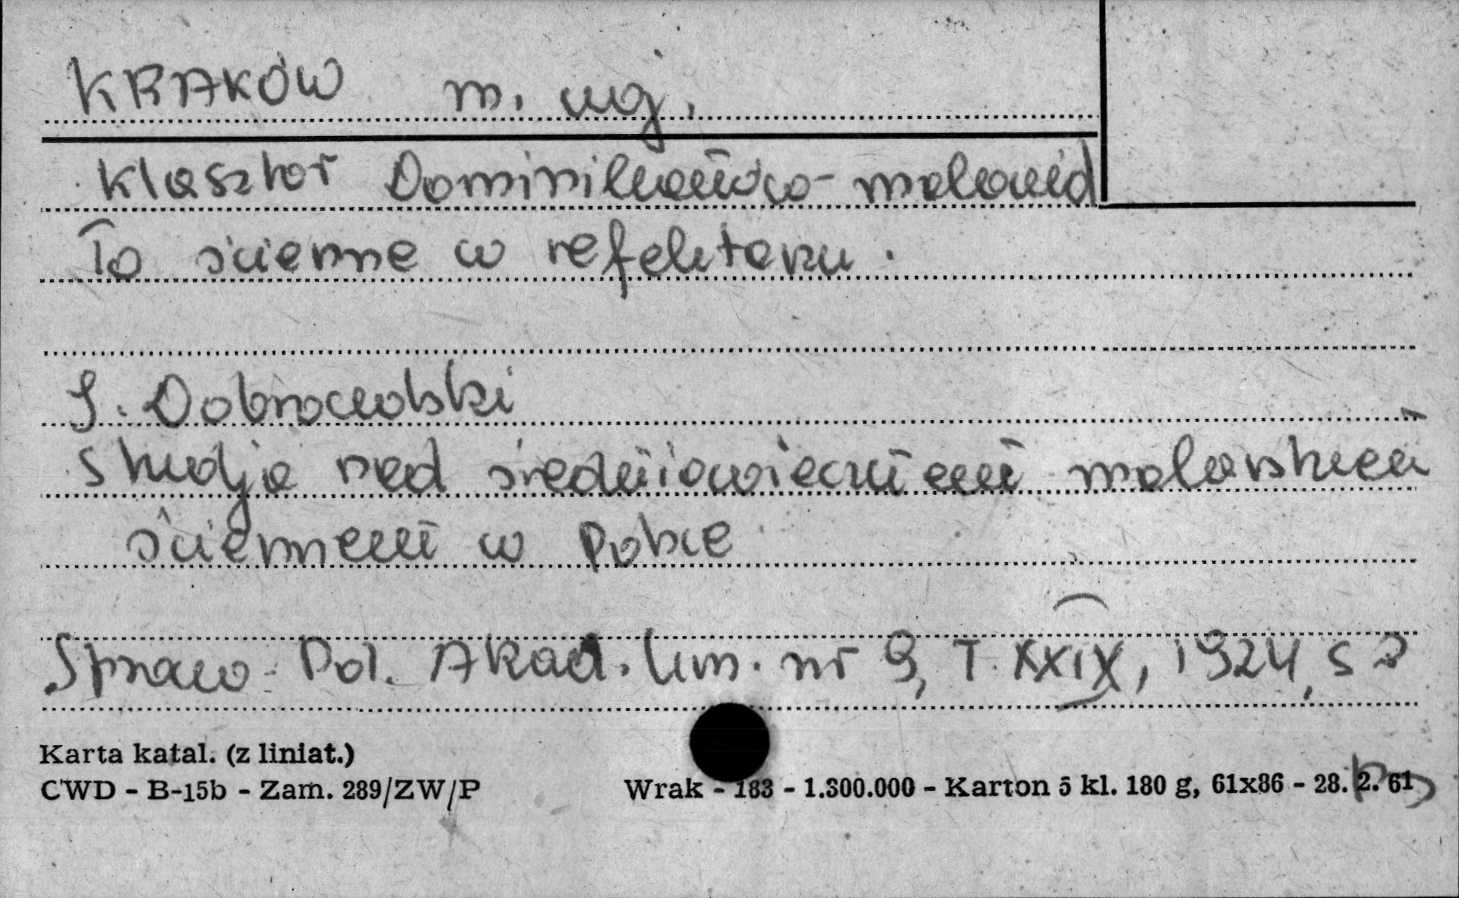 KRAKÓW m. woj.
klasztor Dominikanów - malowid
ło ścienne w refektarzu.
J. Dobrowolski
studja nad średniowiecznem malarstwem
ściennem w Polsce
Spraw. Pol. Akad. Um. nr 9, T. XXIX, 1924, s 2
Karta katal. (z liniat.)
CWD - B-15b - Zam. 289/ZW/P Wrak - 183 - 1.300.000 - Karton 5 kl. 180 g, 61x86 - 28. 2. 61